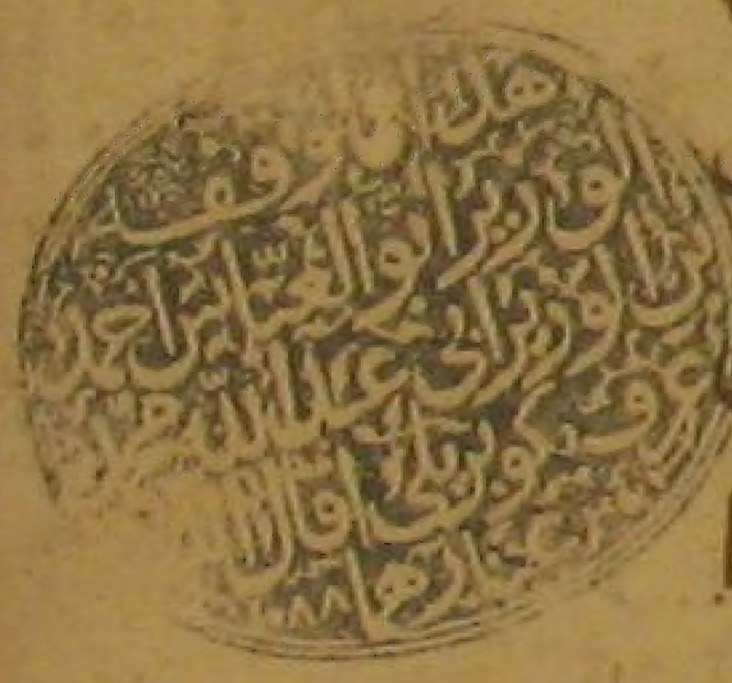 هذا ما وقف
الوزير ابو العباس احمد
بن الوزير ابي عبد الله محمد
عرف بكوبريلي اقال الله
عثارهما ٨٨